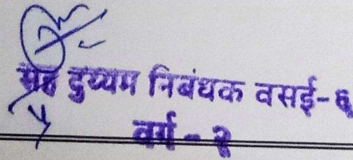 सह दुय्यम निबंधक वसई-६
वर्ग - २